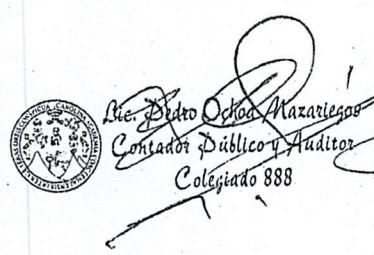 Lic. Pedro Ochoa Mazariegos
Contador Público y Auditor
Colegiado 888